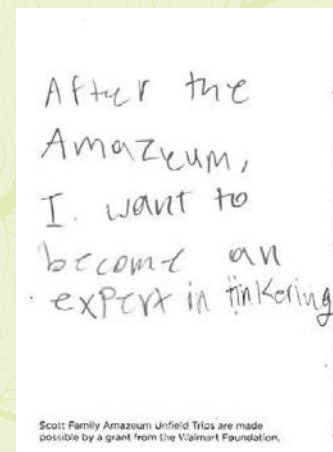 After the
Amazeum,
I. want to
become an
expert in tinkering
Scott Family Amazeum Unfield Trips are made
possible by a grant from the Walmart Foundation.